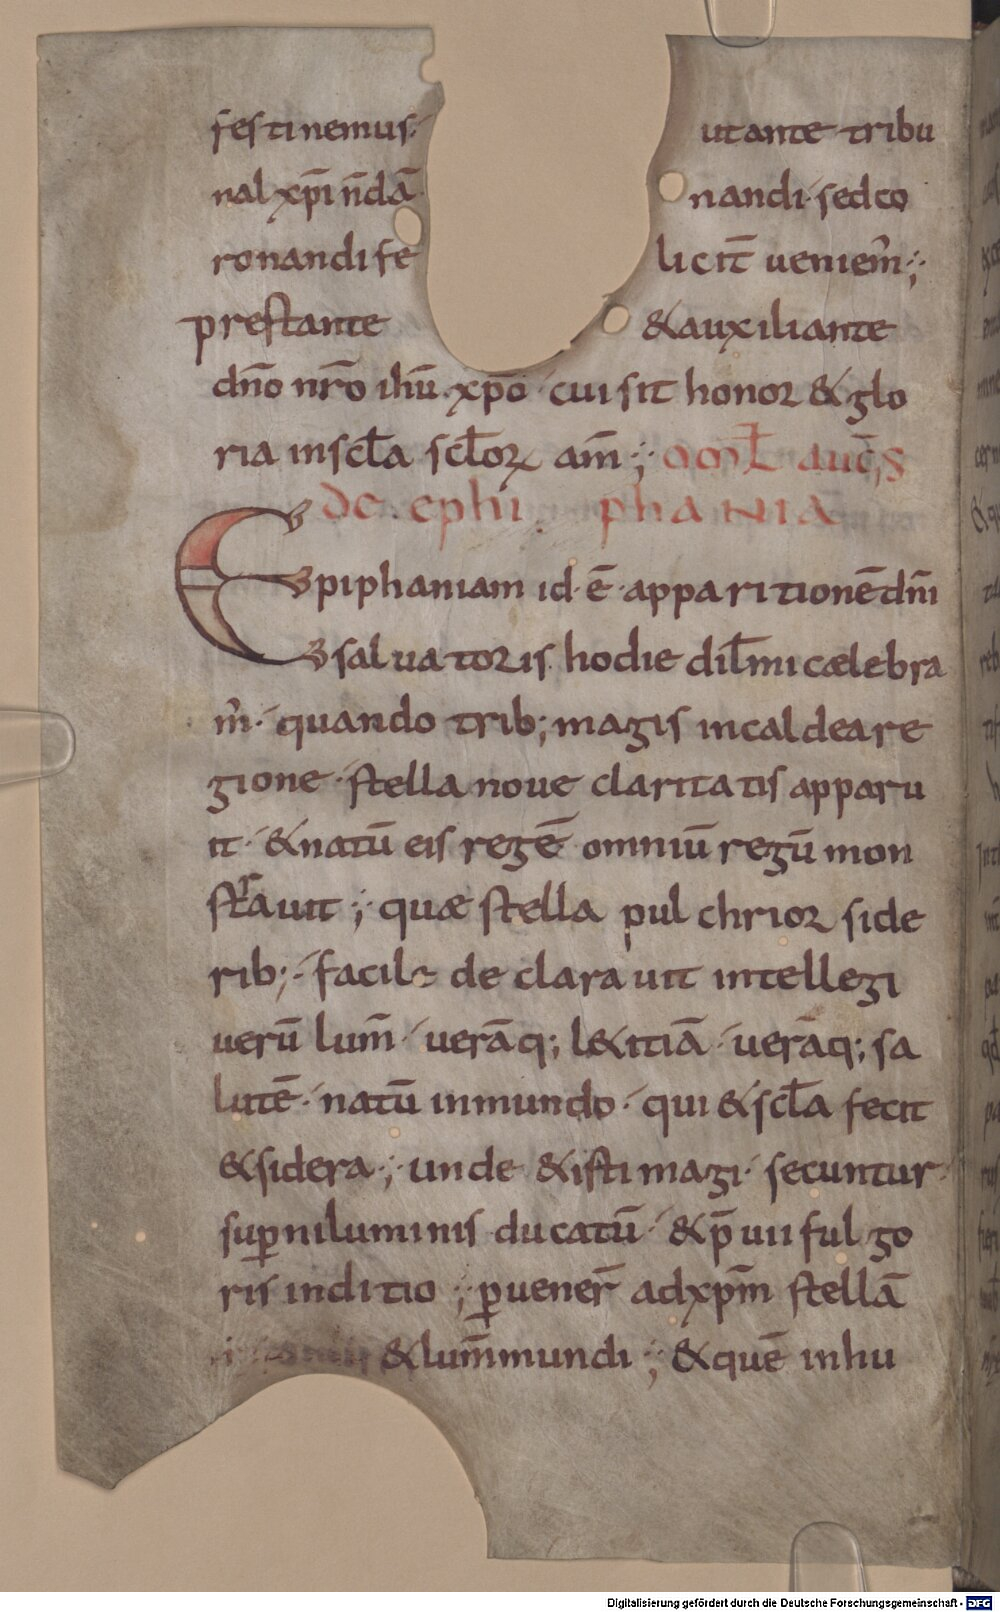 festinemus· utante tribu
nal xp̄i n̄ dā nandi· sed co
ronandi fe licit̄ ueniem̄·;·
prestante &auxiliante
dn̄o nr̄o ihū xp̄o· cui sit honor & glo
ria in scl̄a scl̄oꝝ am̄·;· omł auḡs
de ephi phania
Epiphaniam id· ē· apparitionē dn̄i
salua toris hodie dil̄mi cælebra
m̄· quando trib; magis in caldea re
gione· stella noue claritatis apparu
it· &natū eis regē omniū regū mon
strauit·;· quæ stella pulchrior side
rib;· facil̄ declarauit intellegi
uerū lum̄· uerāq; l&itiā· uerāq; sa
lutē· natū in mundo· qui & scl̄a fecit
&sidera·;· unde &isti magi· secuntur·
suꝑni luminis ducatū· & p̄uii fulgo
ris inditio·;· ꝑuener̄ ad xp̄m stellā
&lum̄ mundi·;· &quē in hu
Digitalisierung gefördert durch die Deutsche Forschungsgemeinschaft - DFG